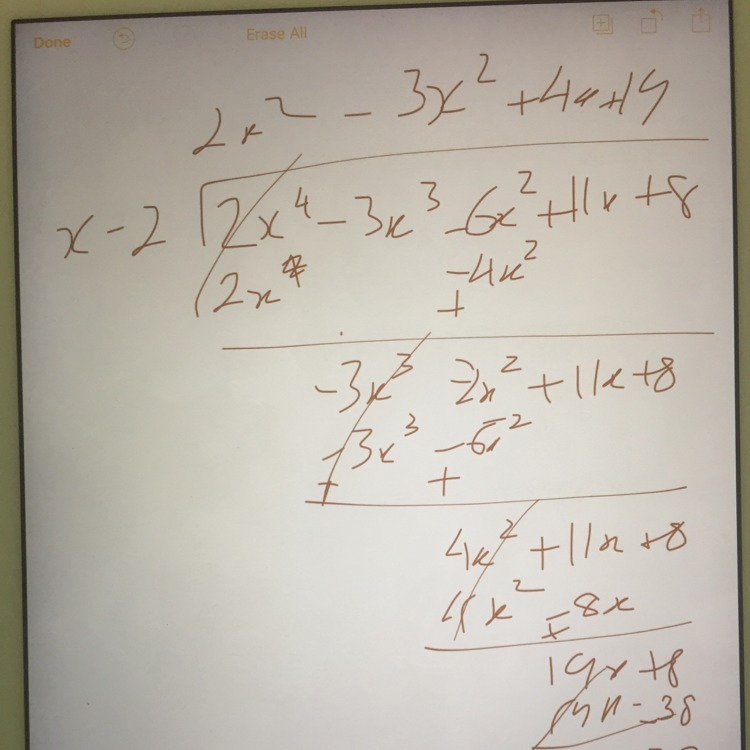 Done Erase All
2x² - 3x² + 4x + 19
x - 2 2x⁴ - 3x³ - 6x² + 11x + 8
2x⁴ - 4x²
+
- 3x³ - 2x² + 11x + 8
- 3x³ - 6x²
+ +
4x² + 11x + 8
4x² - 8x
+
19x + 8
19x - 38